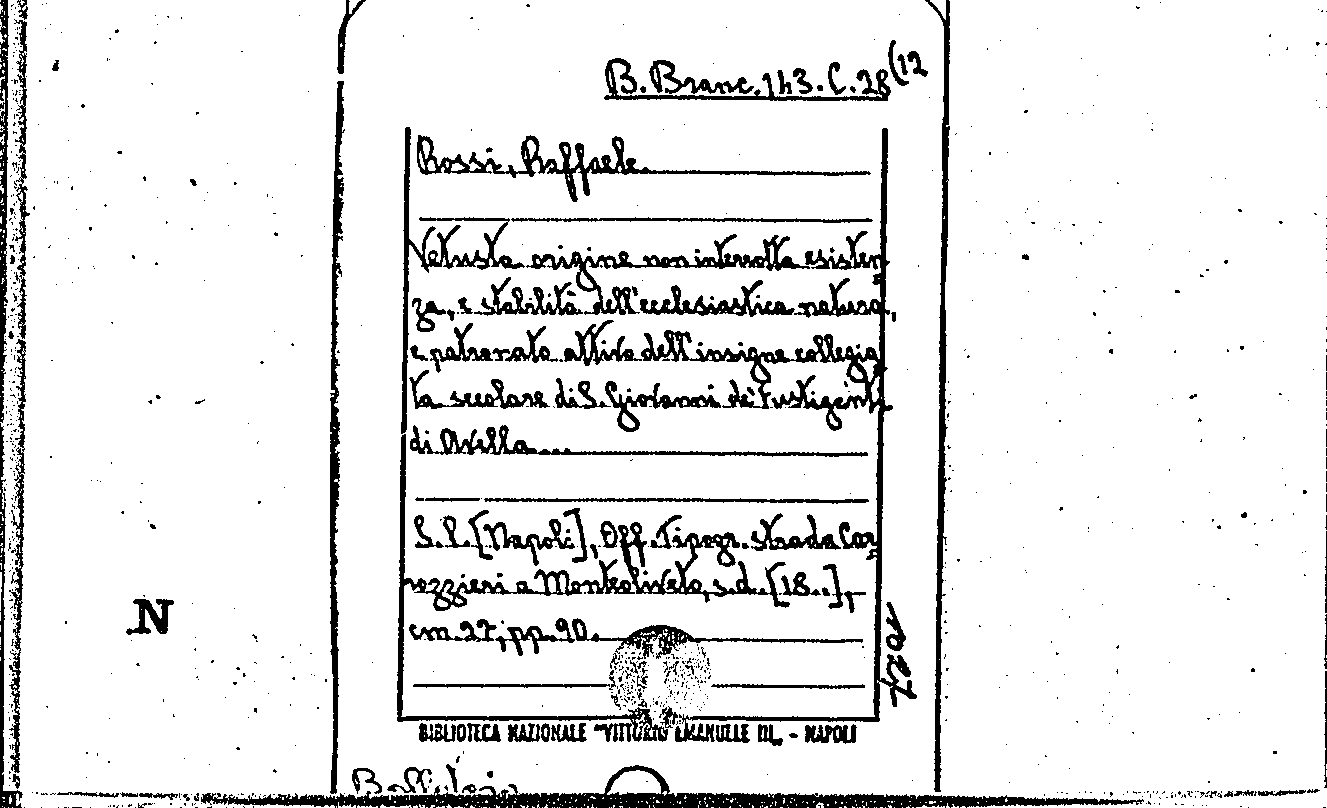 B. Branc. 143. C. 28(12
Rossi, Raffaele.
Vetusta origine non interrotta esisten
za, e stabilità dell'ecclesiastica natura,
e patronato attivo dell'insigne collegia
ta secolare di S. Giovanni de' Fustiganti
di Avella...
S.l. [Napoli], Off. Tipogr. strada Car
rozzieri a Monteoliveto, s.d. [18..],
cm. 27, pp. 90.
N
BIBLIOTECA NAZIONALE "VITTORIO EMANUELE III„ - NAPOLI